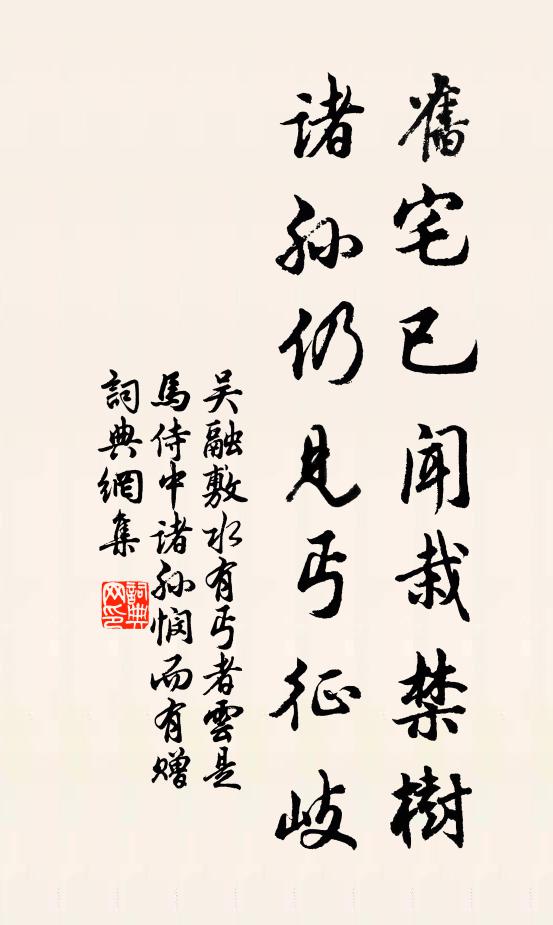 舊宅已聞栽禁樹
諸孫仍見丐征岐
吴融敷水有丐者雲是
馬侍中諸孫憫而有赠
詞典網集
詞典网印